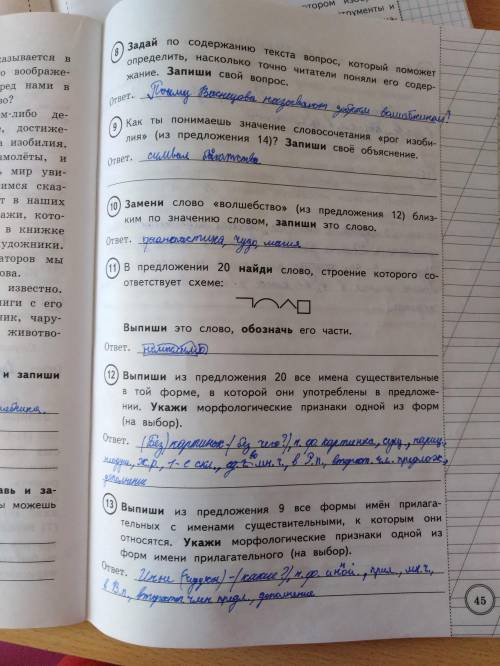 тором изоб
трументы и
азывается в
о воображе-
ред нами в
во?
м-либо де-
е, достиже-
а изобилия,
амолёты, и
ь мир уви-
имся сказ-
т в наших
ажи, кото-
в книжке
удожники.
аторов мы
ова.
известно.
ниги с его
ник, чару-
животво-
и запиши
авь и за-
ы можешь
8 Задай по содержанию текста вопрос, который поможет
определить, насколько точно читатели поняли его содер-
жание. Запиши свой вопрос.
Ответ. Почему Васнецова называют добрым волшебником?
9 Как ты понимаешь значение словосочетания «рог изоби-
лия» (из предложения 14)? Запиши своё объяснение.
Ответ. символ богатства
10 Замени слово «волшебство» (из предложения 12) близ-
ким по значению словом, запиши это слово.
Ответ. фантастика, чудо магия
11 В предложении 20 найди слово, строение которого со-
ответствует схеме:
Выпиши это слово, обозначь его части.
Ответ.
12 Выпиши из предложения 20 все имена существительные
в той форме, в которой они употреблены в предложе-
нии. Укажи морфологические признаки одной из форм
(на выбор).
Ответ. (Без) картинок-( без чего?), н.ф. картинка, сущ., нариц.,
неодуш., ж.р., 1-е скл., во мн.ч., в Р.п., второст. чл. предлож.,
дополнение
13 Выпиши из предложения 9 все формы имён прилага-
тельных с именами существительными, к которым они
относятся. Укажи морфологические признаки одной из
форм имени прилагательного (на выбор).
Ответ. (какие?), н.ф. иной, прил., мн.ч.,
в В.п., второст. член предл., дополнение
45